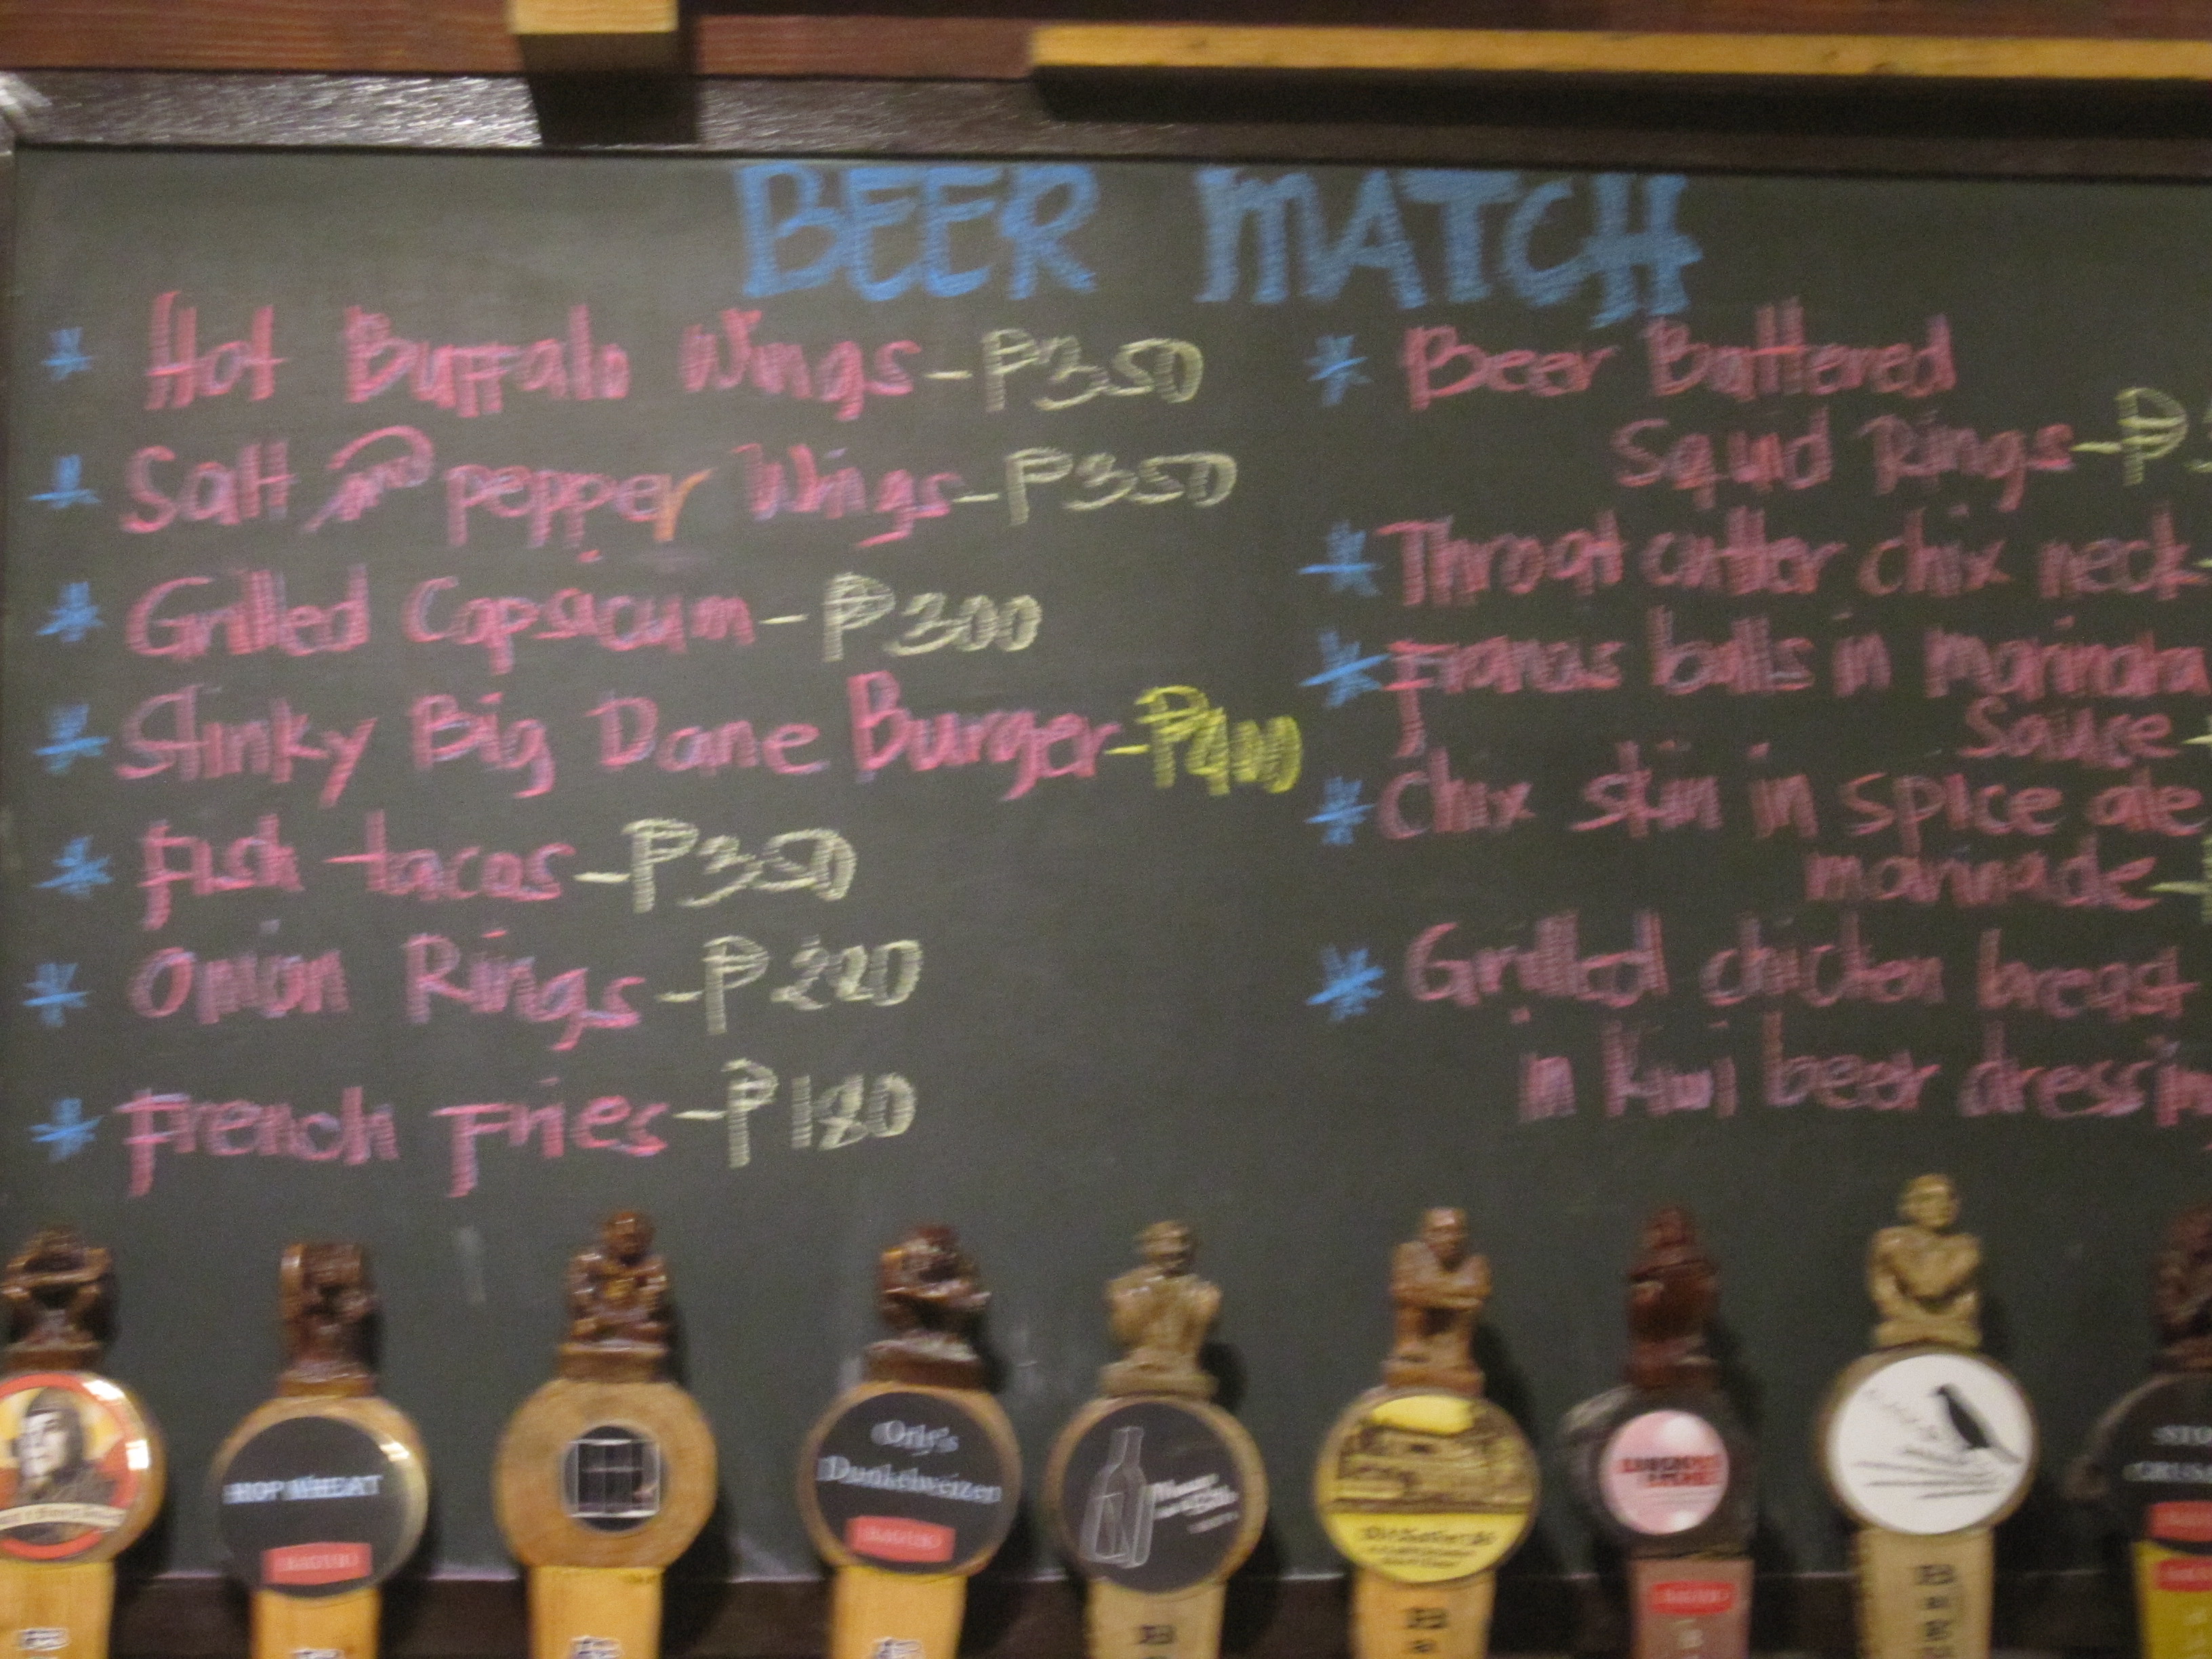 BEER MATCH
* Hot Buffalo Wings - ₱350
* Salt and pepper Wings - ₱350
* Grilled Capsacum - ₱300
* Stinky Big Dane Burger - ₱400
* Fish tacos - ₱350
* Onion Rings - ₱220
* French Fries - ₱180
* Beer Battered
Squid Rings - ₱
* Throat cutter chix neck -
* Franas balls in marinara
Sauce -
* Chix skin in spice ale
marinade -
* Grilled chicken breast
in kiwi beer dressin
HOP WHEAT
Orly's
Dunkelweizen